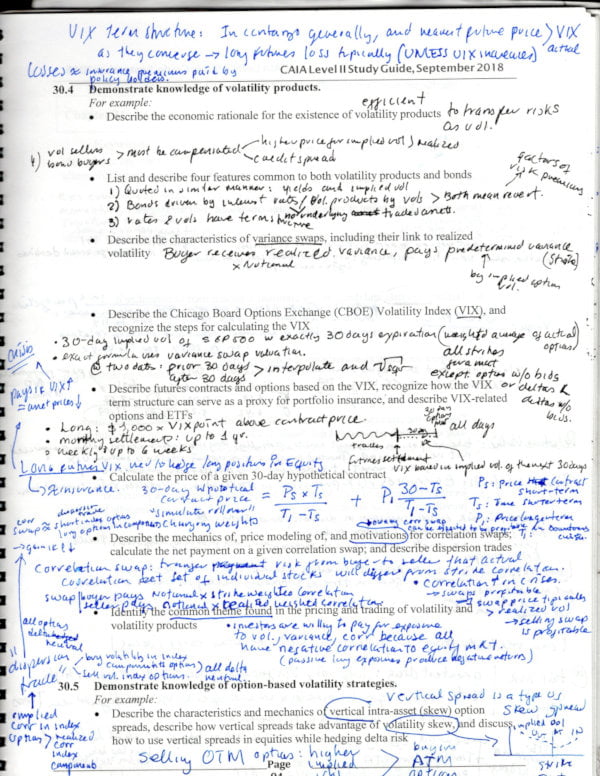 VIX Term structure: In contango generally, and nearest future price > VIX
as they converge → long futures loss typically (UNLESS VIX increases) actual
losses ≈ insurance premiums paid by
policy holders.
CAIA Level II Study Guide, September 2018
30.4 Demonstrate knowledge of volatility products.
For example:
efficient
• Describe the economic rationale for the existence of volatility products to transfer risks
as vol.
4) vol sellers > must be compensated < higher price for implied vol > realized
bond buyers credit spread
factors of
risk premiums
• List and describe four features common to both volatility products and bonds
1) Quoted in similar manner: yields and implied vol
2) Bonds driven by interest rates / Vol. products by vols > Both mean revert.
3) rates & vols have term structure no underlying traded asset.
• Describe the characteristics of variance swaps, including their link to realized
volatility Buyer receives realized variance, pays predetermined variance
x Notional (strike)
by implied option
vol.
• Describe the Chicago Board Options Exchange (CBOE) Volatility Index (VIX), and
recognize the steps for calculating the VIX
• 30-day implied vol of S&P500 w exactly 30 days expiration (weighted average of actual
options)
• exact formula uses variance swap valuation. all strikes
crisis
② two dates: prior 30 days > interpolate and
after 30 days except options w/o bids
pays if VIX↑
= asset prices↓
• Describe futures contracts and options based on the VIX, recognize how the VIX
term structure can serve as a proxy for portfolio insurance, and describe VIX-related
options and ETFs
• Long: $1,000 x VIX point above contract price.
• monthly settlement: up to 1 yr.
• weekly: up to 6 weeks
all days
futures settlement
VIX based in implied vol of the next 30 days
Long futures VIX used to hedge long positions in Equity
→ ≈ insurance.
• Calculate the price of a given 30-day hypothetical contract
30-day hypothetical
contract price = Ps x Ts / Tl - Ts + Pl 30-Ts / Tl-Ts
"simulate rolling"
changing weights
Ps: Price contract
short-term
Ts: Time shorter term
Pl: Price longer term
• Describe the mechanics of, price modeling of, and motivations for correlation swaps;
calculate the net payment on a given correlation swap; and describe dispersion trades
Correlation swap: transfer risk from buyer to seller that actual
correlation bet set of individual stocks will differ from strike correlation.
• correlation ↑ in crises.
→ swaps profitable
swap buyer pays notional x strike weighted correlation
seller pays notional x realized weighed correlation
→ swap price typically
> realized vol
→ selling swap
is profitable
• Identify the common theme found in the pricing and trading of volatility and
volatility products
• investors are willing to pay for exposure
to vol, variance, corr because all
have negative correlation to equity mkt.
(passive long exposures produce negative returns)
all options
delta
neutral
dispersion
trade
buy volatility in index
components options
sell vol. index options. all delta
neutral.
implied
corr in index
options > realized
corr
index
components
30.5 Demonstrate knowledge of option-based volatility strategies.
For example:
vertical spread is a type of
skew spread
• Describe the characteristics and mechanics of vertical intra-asset (skew) option
spreads, describe how vertical spreads take advantage of volatility skew, and discuss
how to use vertical spreads in equities while hedging delta risk
implied vol
strike
Selling OTM options: higher
implied
buying
ATM
options
Page